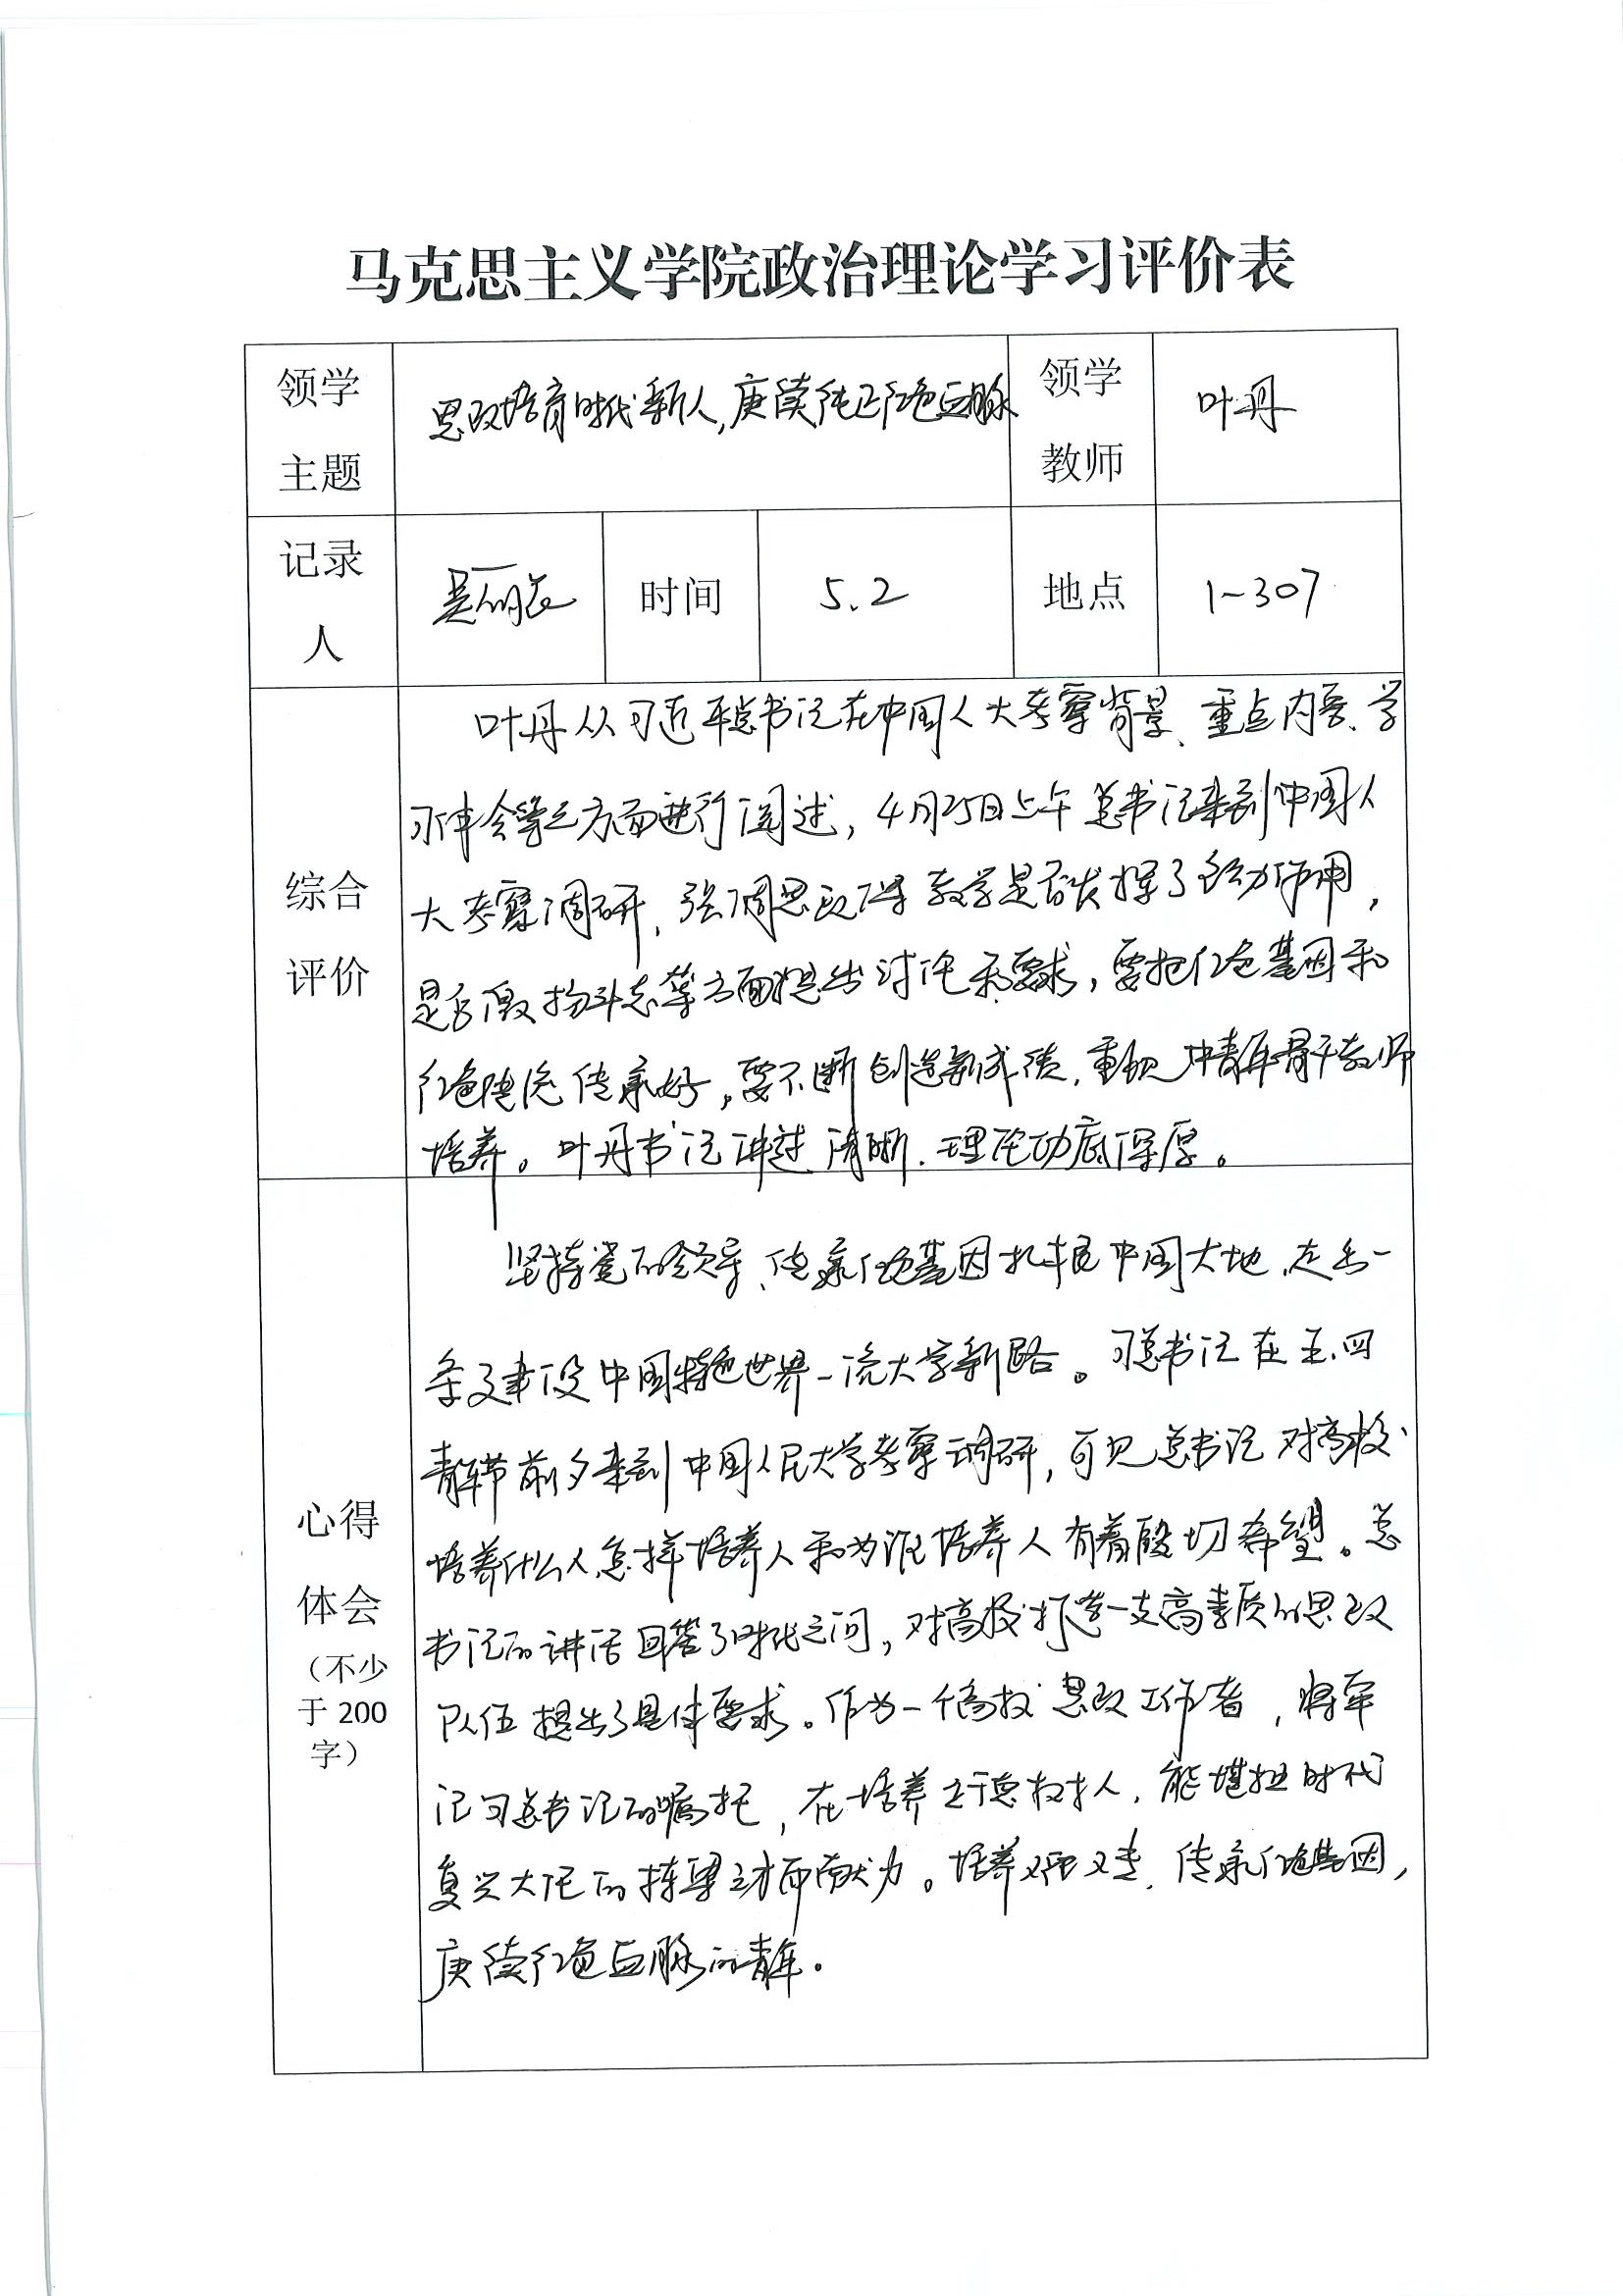 马克思主义学院政治理论学习评价表
领学
主题
思政培育时代新人,赓续纯正红色血脉
领学
教师
叶丹
记录
人
时间
5.2
地点
1-307
综合
评价
叶丹从习近平总书记在中国人大考察背景、重点内容、学
习体会等三方面进行阐述,4月25日上午总书记来到中国人
大考察调研,强调思政课教学是否发挥了 作用,
是否激扬斗志等方面提出讨论和要求,要把红色基因和
红色传统传承好,要不断创造新成绩,重视中青年骨干教师
培养。叶丹书记讲述清晰、理论功底深厚。
心得
体会
(不少
于200
字)
坚持党的领导、传承红色基因扎根中国大地,走出一
条建设中国特色世界一流大学新路。习总书记在五.四
青年节前夕来到中国人民大学考察调研,可见总书记对高校
培养什么人,怎样培养人和为谁培养人有着殷切希望。总
书记的讲话回答了时代之问,对高校打造一支高素质的思政
队伍提出了具体要求。作为一个高校思政工作者,将牢
记习总书记的嘱托,在培养立德树人,能堪担时代
复兴大任的栋梁之才而献力。培养又红又专,传承红色基因,
赓续红色血脉的青年.